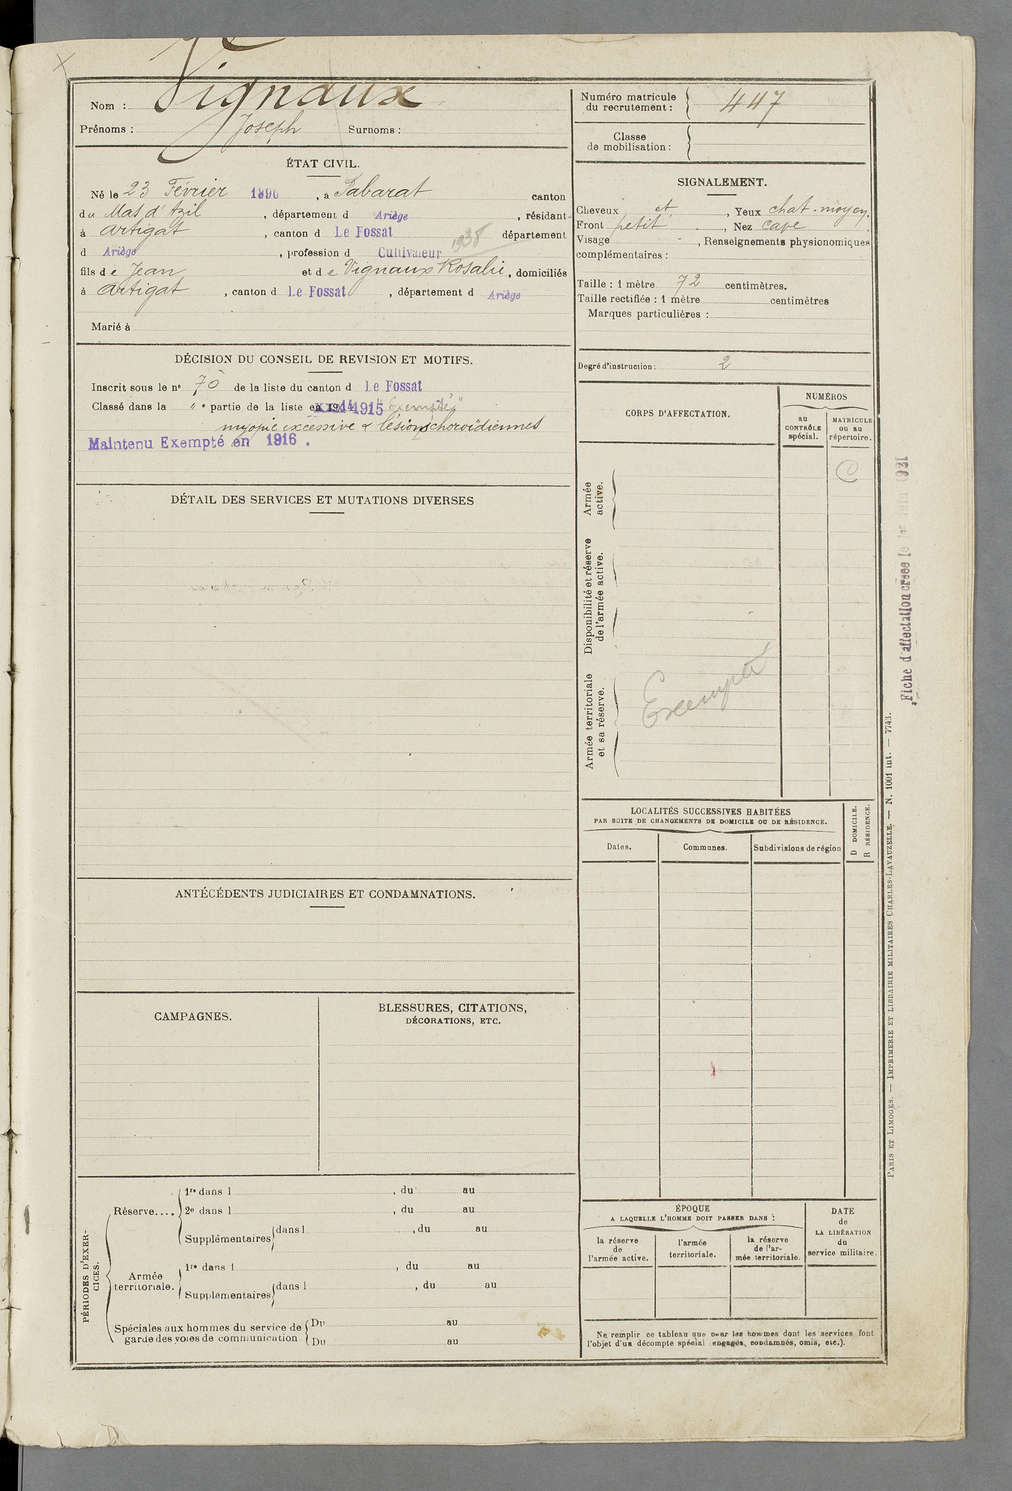 Nom : Vignaux
Prénoms : Joseph Surnoms :
Numéro matricule du recrutement : 447
Classe de mobilisation :
ÉTAT CIVIL.
Né le 23 Février 1896, à Sabarat canton
du Mas d'Azil, département d Ariège, résidant
à Artigat, canton d Le Fossat département
1938
d Ariège, profession d Cultivateur
fils de Jean et de Vignaux Rosalie, domiciliés
à Artigat, canton d Le Fossat, département d Ariège
Marié à
SIGNALEMENT.
Cheveux et, Yeux chat. moyen.
Front petit, Nez cave
Visage -, Renseignements physionomiques
complémentaires :
Taille : 1 mètre 72 centimètres.
Taille rectifiée : 1 mètre centimètres
Marques particulières :
Degré d'instruction : 2
DÉCISION DU CONSEIL DE REVISION ET MOTIFS.
Inscrit sous le n° 70 de la liste du canton d Le Fossat
Classé dans la " e partie de la liste en 1915 "Exemptés"
myopie excessive & lésions choroïdiennes
Maintenu Exempté en 1916.
DÉTAIL DES SERVICES ET MUTATIONS DIVERSES
CORPS D'AFFECTATION.
NUMÉROS
au CONTRÔLE spécial.
MATRICULE ou au répertoire.
C
Armée active.
Disponibilité et réserve de l'armée active.
Armée territoriale et sa réserve.
Exempté
Fiche d'affectation créée le 1er Juin 1931
LOCALITÉS SUCCESSIVES HABITÉES
PAR SUITE DE CHANGEMENTS DE DOMICILE OU DE RÉSIDENCE.
Dates. Communes. Subdivisions de région
D DOMICILE.
R RÉSIDENCE.
ANTÉCÉDENTS JUDICIAIRES ET CONDAMNATIONS.
CAMPAGNES.
BLESSURES, CITATIONS,
DÉCORATIONS, ETC.
PÉRIODES D'EXERCICES.
Réserve....
1re dans l , du au
2e dans l , du au
Supplémentaires dans l , du au
Armée territoriale.
1re dans l , du au
Supplémentaires dans l , du au
Spéciales aux hommes du service de garde des voies de communication
Du au
Du au
ÉPOQUE
A LAQUELLE L'HOMME DOIT PASSER DANS :
la réserve de l'armée active.
l'armée territoriale.
la réserve de l'armée territoriale.
DATE de LA LIBÉRATION du service militaire.
Ne remplir ce tableau que pour les hommes dont les services font
l'objet d'un décompte spécial (engagés, condamnés, omis, etc.).
PARIS ET LIMOGES. — IMPRIMERIE ET LIBRAIRIE MILITAIRES CHARLES-LAVAUZELLE. — N. 1001 int. — 7743.